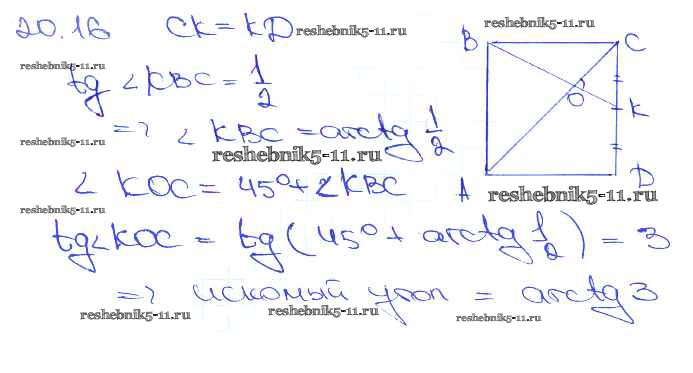 20.16 CK = KD reshebnik5-11.ru
reshebnik5-11.ru
reshebnik5-11.ru
tg ∠KBC = 1/2
B C
K
O
A D
reshebnik5-11.ru
=> ∠ KBC = arctg 1/2
reshebnik5-11.ru
reshebnik5-11.ru
∠ KOC = 45° + ∠KBC
reshebnik5-11.ru
tg∠KOC = tg(45° + arctg 1/2) = 3
=> искомый угол = arctg 3
reshebnik5-11.ru reshebnik5-11.ru reshebnik5-11.ru